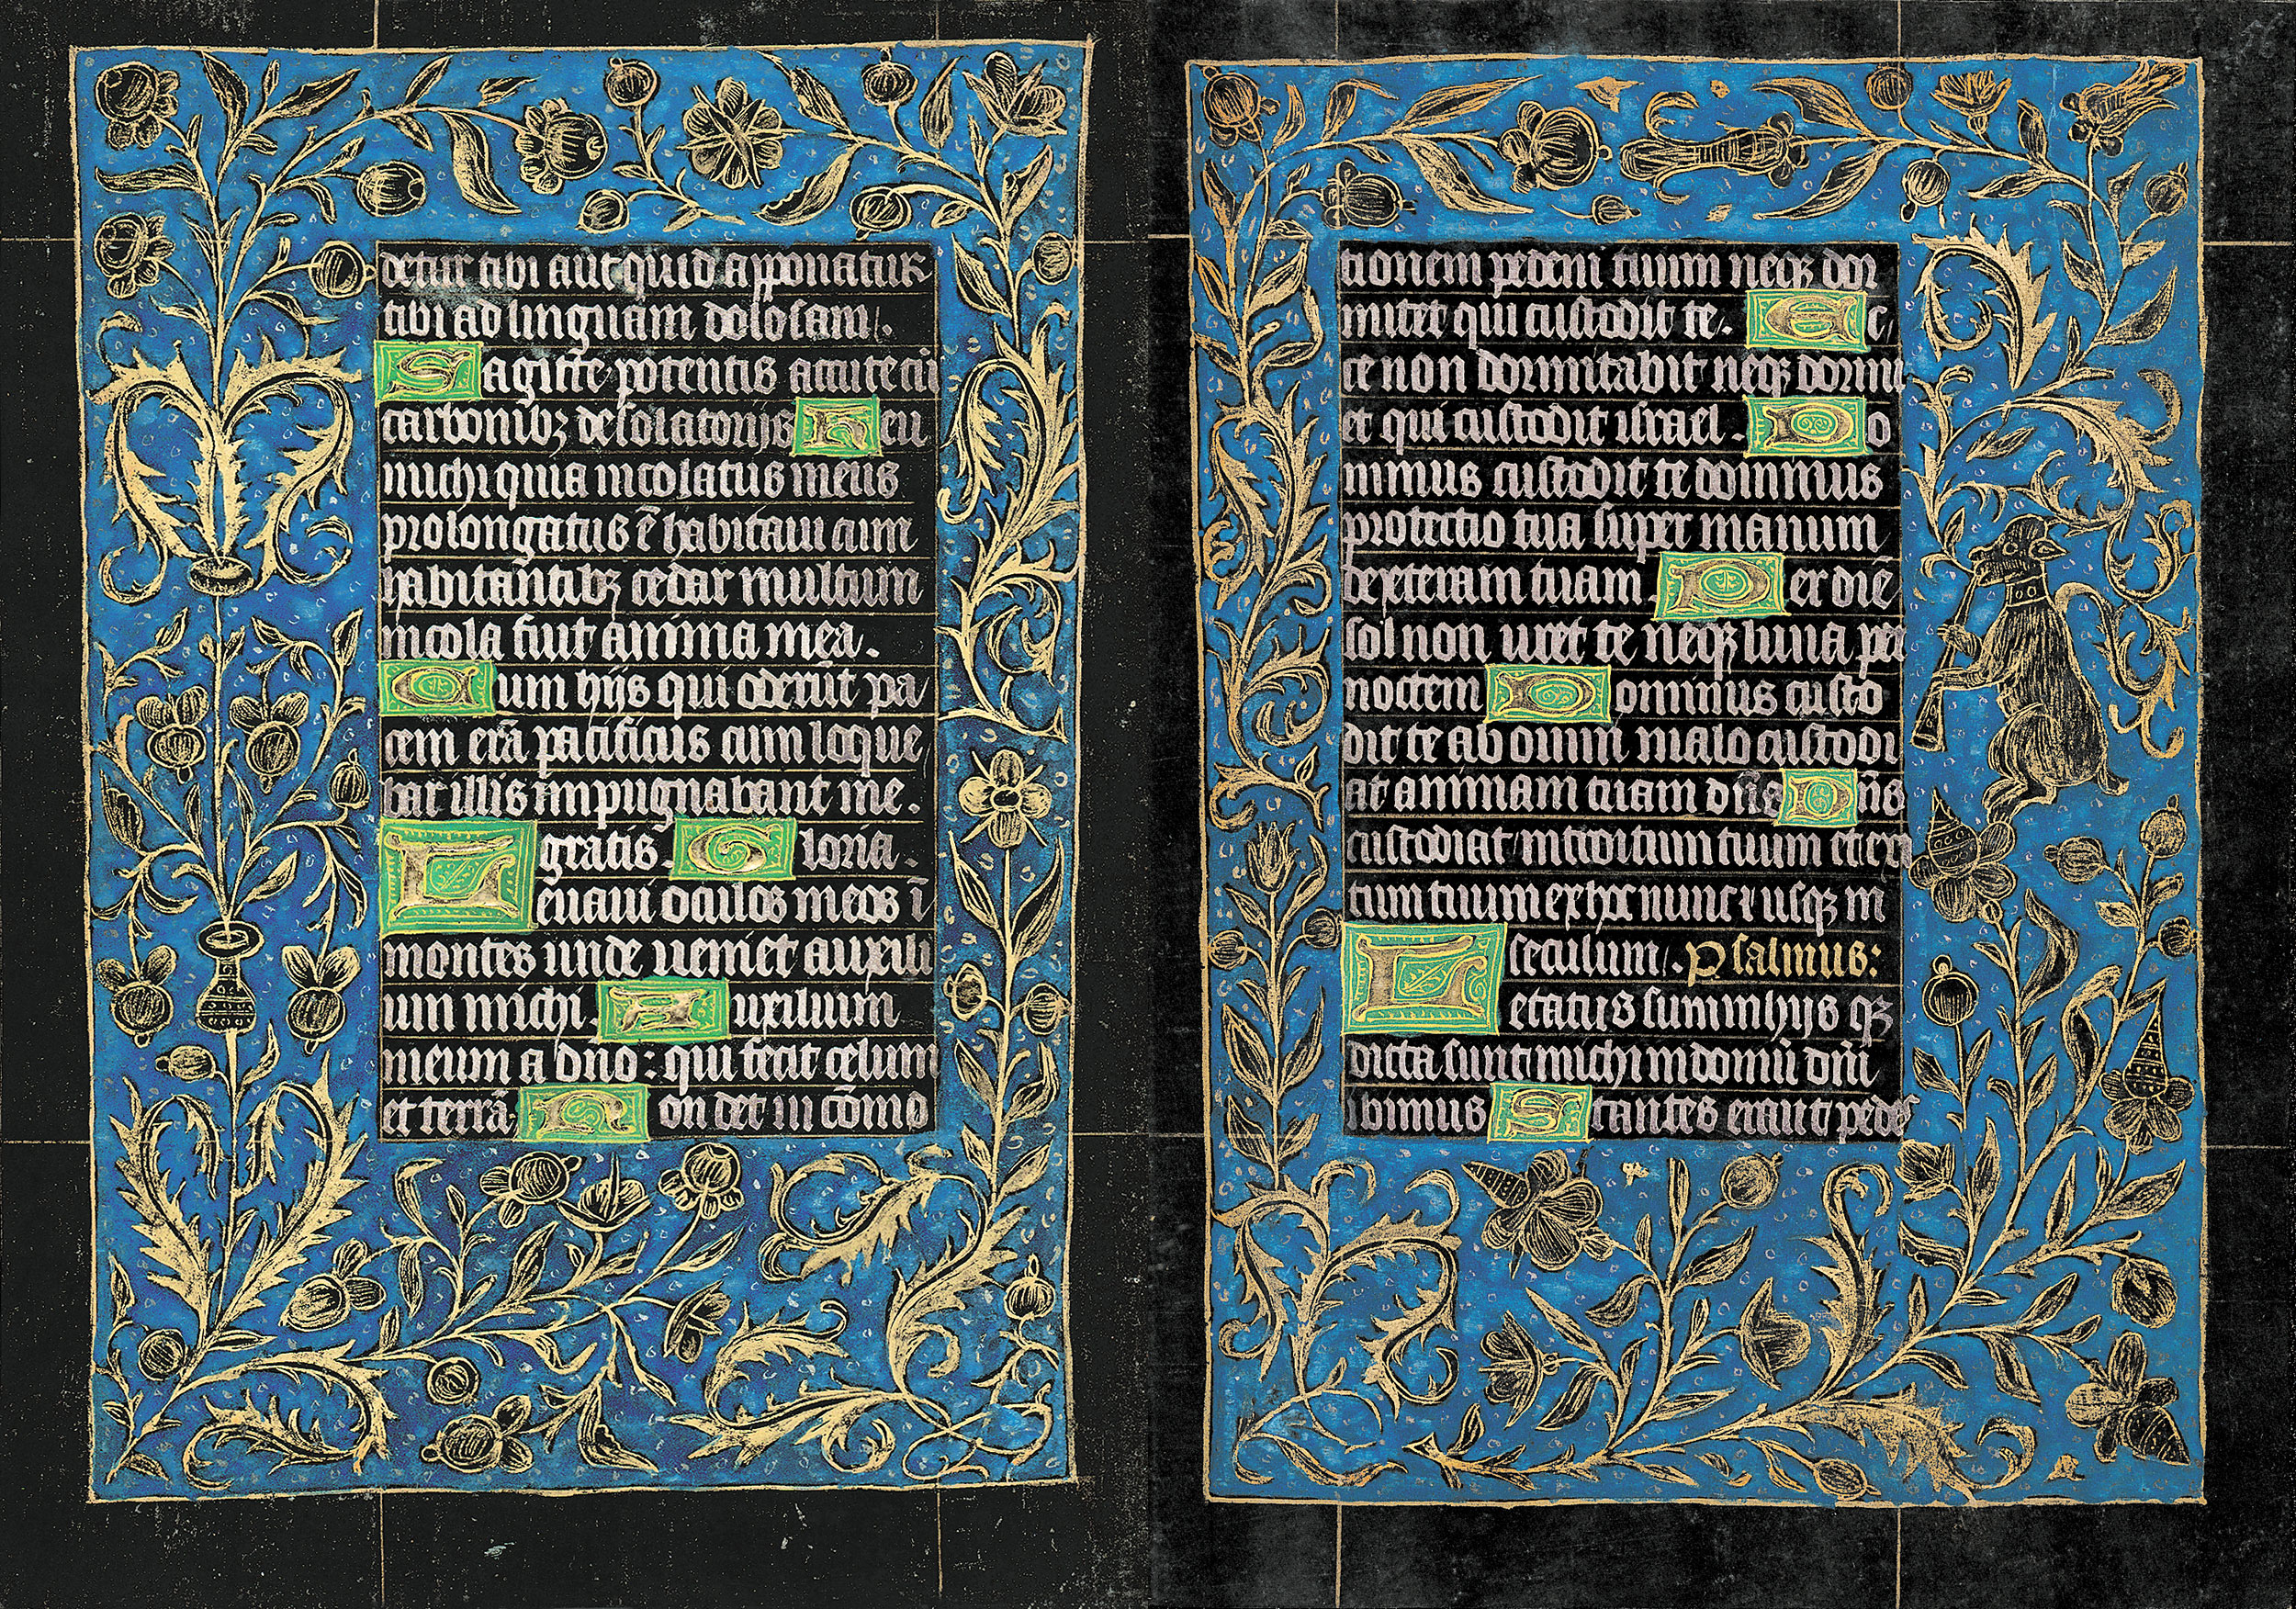 detur tibi aut quid apponatur
tibi ad linguam dolosam.
Sagitte potentis acute cū
carbonibꝫ desolatorijs Heu
michi quia incolatus meus
prolongatus ē habitaui cum
habitantibꝫ cedar multum
incola fuit anima mea.
Cum hijs qui oderūt pa
cem erā pacificus cum loque
bar illis inpugnabant me.
gratis. Gloria.
Leuaui oculos meos ī
montes unde ueniet auxili
um michi. Auxilium
meum a dnō: qui fecit celum
et terrā. Non det in cōmo
tionem pedem tuum neqꝫ dor
mitet qui custodit te. Ec
ce non dormitabit neqꝫ dormi
et qui custodit israel. Do
minus custodit te dominus
protectio tua super manum
dexteram tuam. Per diē
sol non uret te neqꝫ luna per
noctem Dominus custo
dit te ab omni malo custodi
at animam tuam dn̄s Dn̄s
custodiat introitum tuum et exi
tum tuum ex hoc nunc ⁊ usqꝫ in
seculum. Psalmus:
Letatus sum in hijs qꝫ
dicta sunt michi in domū dn̄i
ibimus Stantes erant pedes